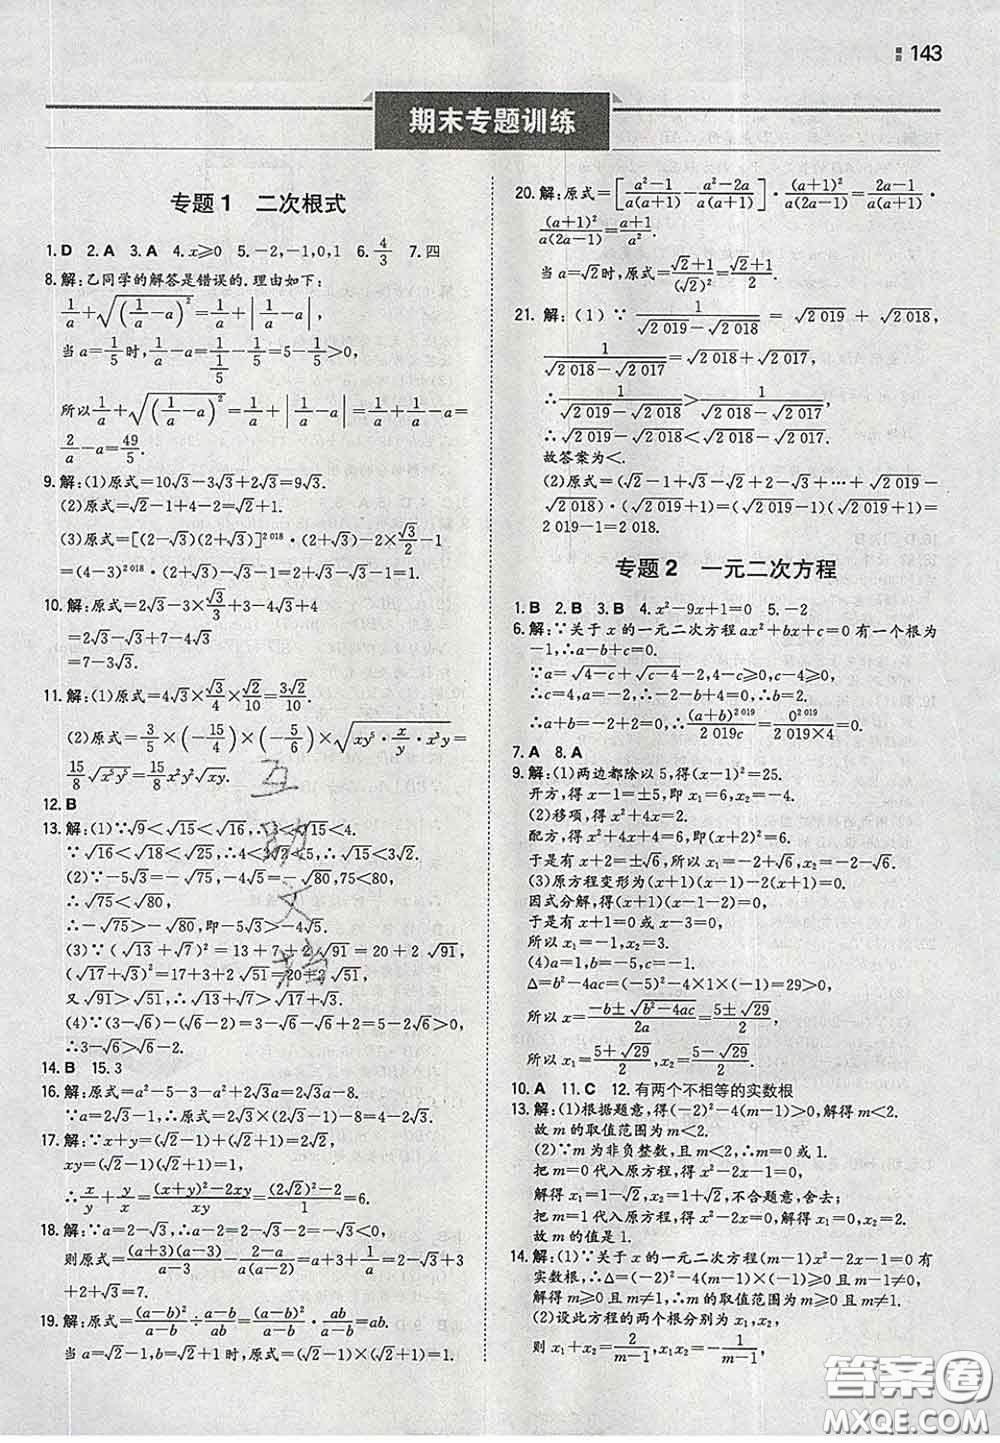 143
期末专题训练
专题1 二次根式
1.D 2.A 3.A 4.x⩾0 5.-2,-1,0,1 6.4/3 7.四
8.解:乙同学的解答是错误的.理由如下:
1/a+√((1/a-a)²)=1/a+|1/a-a|,
当a=1/5时,1/a-a=1/(1/5)-1/5=5-1/5>0,
所以1/a+√((1/a-a)²)=1/a+|1/a-a|=1/a+1/a-a=
2/a-a=49/5.
9.解:(1)原式=10√3-3√3+2√3=9√3.
(2)原式=√2-1+4-2=√2+1.
(3)原式=[(2-√3)(2+√3)]^2 018-√3+2×√3/2-1
=(4-3)^2 018-√3+√3-1=1-√3+√3-1=0.
10.解:原式=2√3-3×√3/3+3-4√3+4
=2√3-√3+7-4√3
=7-3√3.
11.解:(1)原式=4√3×√3/4×√2/10=3√2/10.
(2)原式=3/5×(-15/4)×(-5/6)×√(xy⁵·x/y·x³y)=
15/8√(x⁵y⁵)=15/8x²y²√(xy).
12.B
13.解:(1)∵√9<√15<√16,∴3<√15<4.
∵√16<√18<√25,∴4<3√2<5,∴√15<3√2.
(2)∵-5√3=-√75,-4√5=-√80,75<80,
∴√75<√80,
∴-√75>-√80,即-5√3>-4√5.
(3)∵(√13+√7)²=13+7+2√91=20+2√91,
(√17+√3)²=17+3+2√51=20+2√51,
又√91>√51,∴√13+√7>√17+√3.
(4)∵(3-√6)-(√6-2)=3-√6-√6+2=5-2√6>0,
∴3-√6>√6-2.
14.B 15.3
16.解:原式=a²-5-3-a²+2√3a=2√3a-8.
∵a=2√3-1,∴原式=2√3×(2√3-1)-8=4-2√3.
17.解:∵x+y=(√2-1)+(√2+1)=2√2,
xy=(√2-1)(√2+1)=1,
∴x/y+y/x=((x+y)²-2xy)/xy=((2√2)²-2)/1=6.
18.解:∵a=2-√3,∴a-2=2-√3-2=-√3<0,
则原式=(a+3)(a-3)/(a-3)-(2-a)/(a(a-2))=a+3+1/a=2-√3+3
+2+√3=7.
19.解:原式=(a-b)²/(a-b)÷(a-b)/ab=(a-b)²/(a-b)·ab/(a-b)=ab.
当a=√2+1,b=√2-1时,原式=(√2+1)(√2-1)=1.
20.解:原式=[(a²-1)/(a(a+1))-(a²-2a)/(a(a+1))]·(a+1)²/(a(2a-1))=(2a-1)/(a(a+1))·
(a+1)²/(a(2a-1))=(a+1)/a².
当a=√2时,原式=(√2+1)/(√2)²=(√2+1)/2.
21.解:(1)∵1/(√2 019-√2 018)=√2 019+√2 018,
1/(√2 018-√2 017)=√2 018+√2 017,
∴1/(√2 019-√2 018)>1/(√2 018-√2 017),
∴√2 019-√2 018<√2 018-√2 017.
故答案为<.
(2)原式=(√2-1+√3-√2+…+√2 019-
√2 018)·(√2 019+1)=(√2 019-1)(√2 019+1)=
2 019-1=2 018.
专题2 一元二次方程
1.B 2.B 3.B 4.x²-9x+1=0 5.-2
6.解:∵关于x的一元二次方程ax²+bx+c=0有一个根为
-1,∴a-b+c=0.
∵a=√(4-c)+√(c-4)-2,4-c⩾0,c-4⩾0,
∴c=4,a=-2,∴-2-b+4=0,∴b=2.
∴a+b=-2+2=0,∴(a+b)^2 019/2 019c=0^2 019/(2 019×4)=0.
7.A 8.A
9.解:(1)两边都除以5,得(x-1)²=25.
开方,得x-1=±5,即x₁=6,x₂=-4.
(2)移项,得x²+4x=2.
配方,得x²+4x+4=6,即(x+2)²=6.
于是有x+2=±√6,所以x₁=-2+√6,x₂=-2-√6.
(3)原方程变形为(x-1)(x-1-x)=0.
因式分解,得(x-1)(x-1-2)=0,
于是有x-1=0或x-3=0.
所以x₁=1,x₂=3.
(4)a=1,b=-5,c=-1.
Δ=b²-4ac=(-5)²-4×1×(-1)=29>0,
所以x=(-b±√(b²-4ac))/2a=(5±√29)/2,
所以x₁=(5+√29)/2,x₂=(5-√29)/2.
10.A 11.C 12.有两个不相等的实数根
13.解:(1)根据题意,得(-2)²-4(m-1)>0,解得m<2.
故m的取值范围为m<2.
(2)∵m为非负整数,且m<2,∴m=0或1.
把m=0代入原方程,得x²-2x-1=0,
解得x₁=1-√2,x₂=1+√2,不合题意,舍去;
把m=1代入原方程,得x²-2x=0,解得x₁=0,x₂=2.
故m的值是1.
14.解:(1)∵关于x的一元二次方程(m-1)x²-2x-1=0有
实数根,∴Δ=(-2)²-4(m-1)×(-1)⩾0且m-1≠0,
解得m⩾0且m≠1,∴m的取值范围为m⩾0且m≠1.
(2)设此方程的两个根分别为x₁,x₂,
则x₁+x₂=2/(m-1),x₁x₂=-1/(m-1),
互助文档
答案圈
MXQE.COM